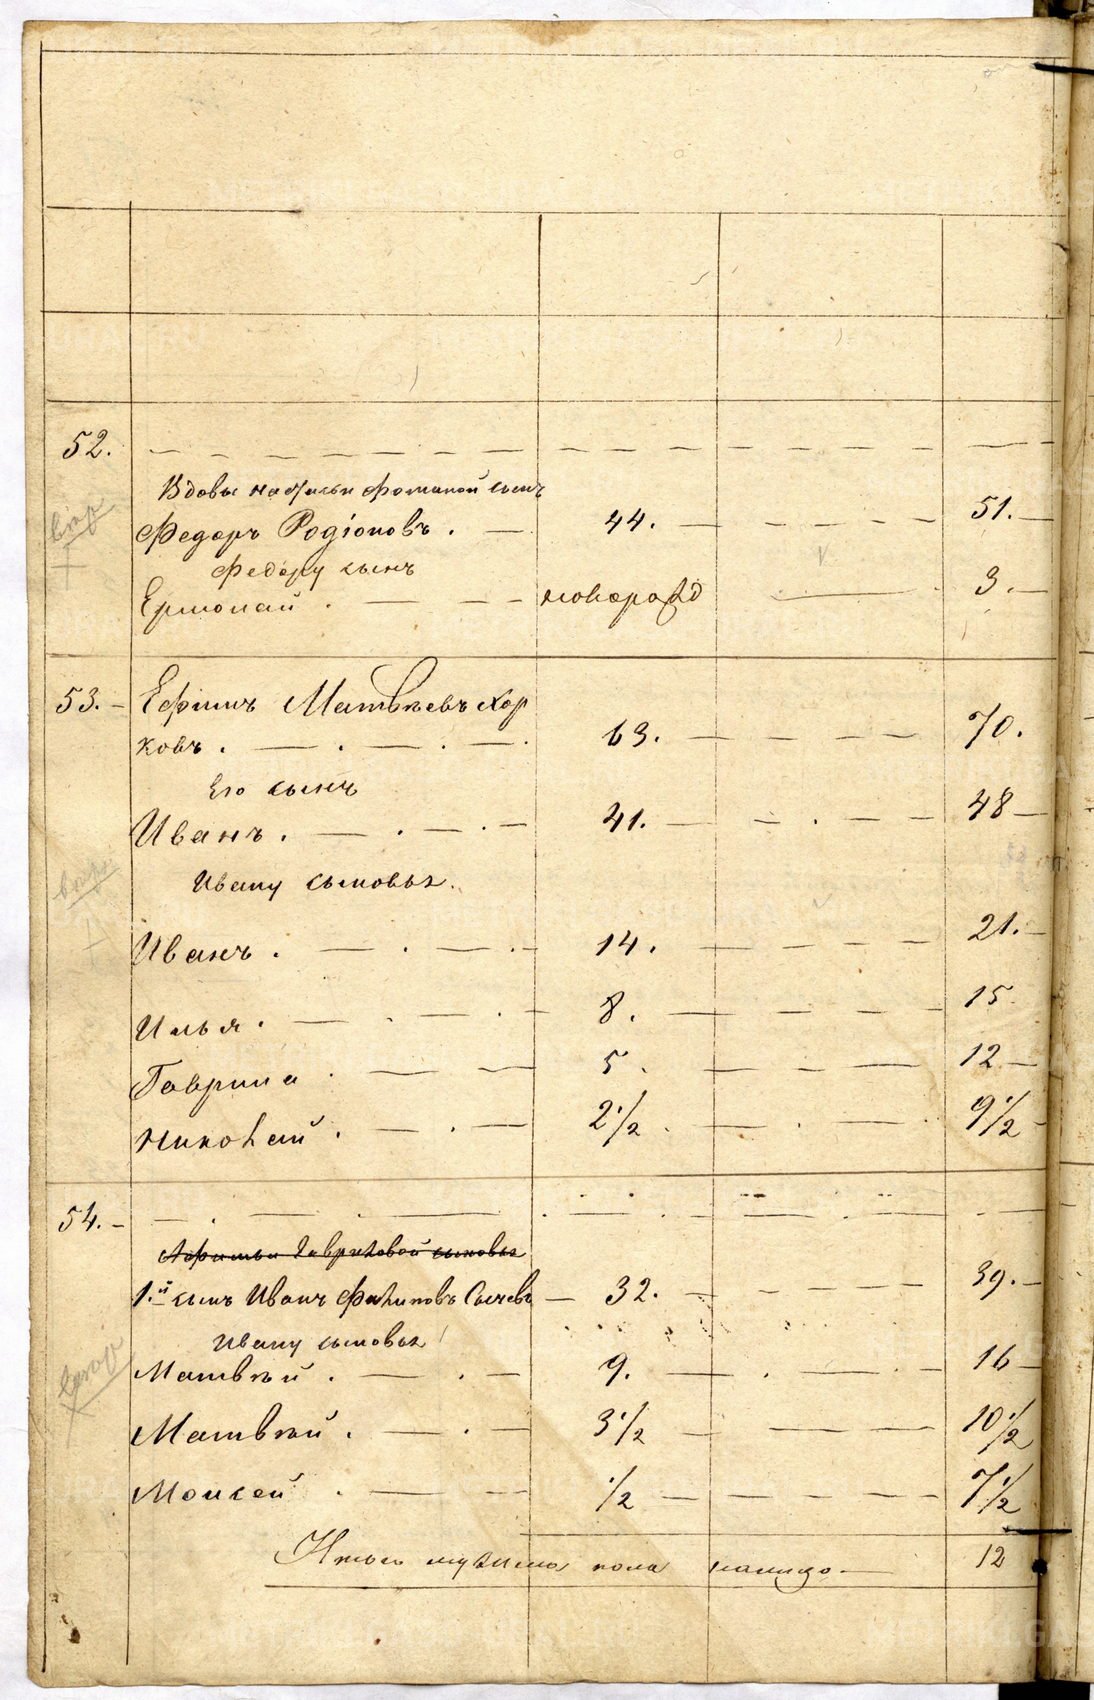 52.
Вдовы Настасьи Фоминой сынъ
Федоръ Родіоновъ. 44. 51.
Федору сынъ
Ермолай. новорожд 3.
53. Ефимъ Матвѣевъ Хор
ковъ. 63. 70.
Его сынъ
Иванъ. 41. 48
Ивану сыновья.
Иванъ. 14. 21.
Илья. 8. 15
Гаврила 5. 12
Николай. 2 1/2. 9 1/2
54.
Афимьи Гавриловой сыновья
1.й сынъ Иванъ Филиповъ Сычевъ 32. 39.
Ивану сыновья
Матвѣй. 9. 16
Матвѣй. 3 1/2 10 1/2
Моисей. 1/2 7 1/2
Итого мужска пола налицо 12